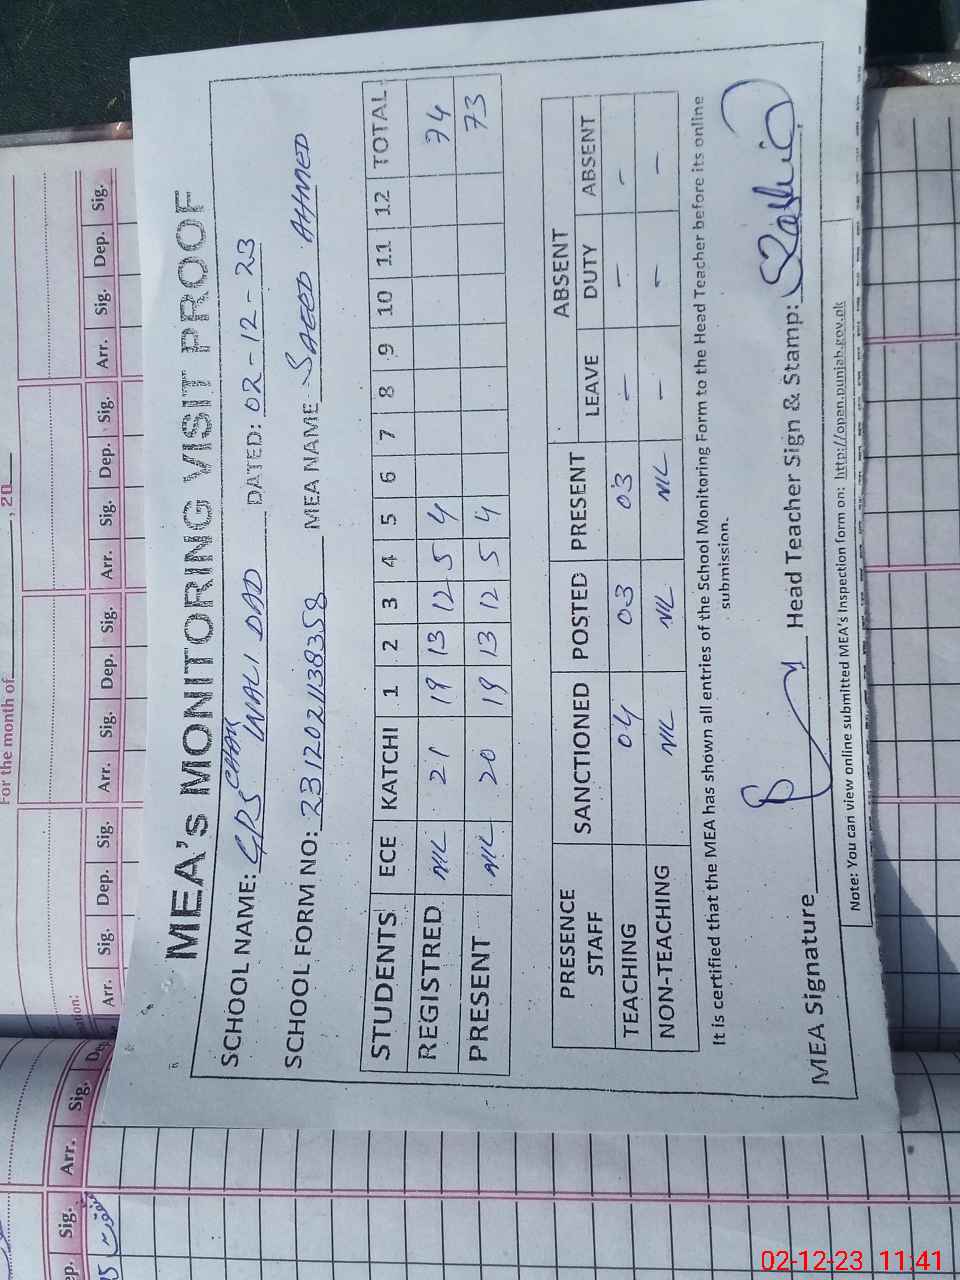 MEA's MONITORING VISIT PROOF
SCHOOL NAME: GPS CHAK WALI DAD DATED: 02-12-23
SCHOOL FORM NO: 2312021138358 MEA NAME SAEED AHMED
STUDENTS ECE KATCHI 1 2 3 4 5 6 7 8 9 10 11 12 TOTAL
REGISTRED NIL 21 19 13 12 5 4 74
PRESENT NIL 20 19 13 12 5 4 73
PRESENCE STAFF SANCTIONED POSTED PRESENT ABSENT
LEAVE DUTY ABSENT
TEACHING 04 03 03 - - -
NON-TEACHING NIL NIL NIL - - -
It is certified that the MEA has shown all entries of the School Monitoring Form to the Head Teacher before its online
submission.
MEA Signature Head Teacher Sign & Stamp:
Note: You can view online submitted MEA's Inspection form on: http://open.punjab.gov.pk
For the month of , 20
Arr. Sig. Dep. Sig. Arr. Sig. Dep. Sig. Arr. Sig. Dep. Sig. Arr. Sig. Dep. Sig.
Sig. Arr. Sig.
02-12-23 11:41